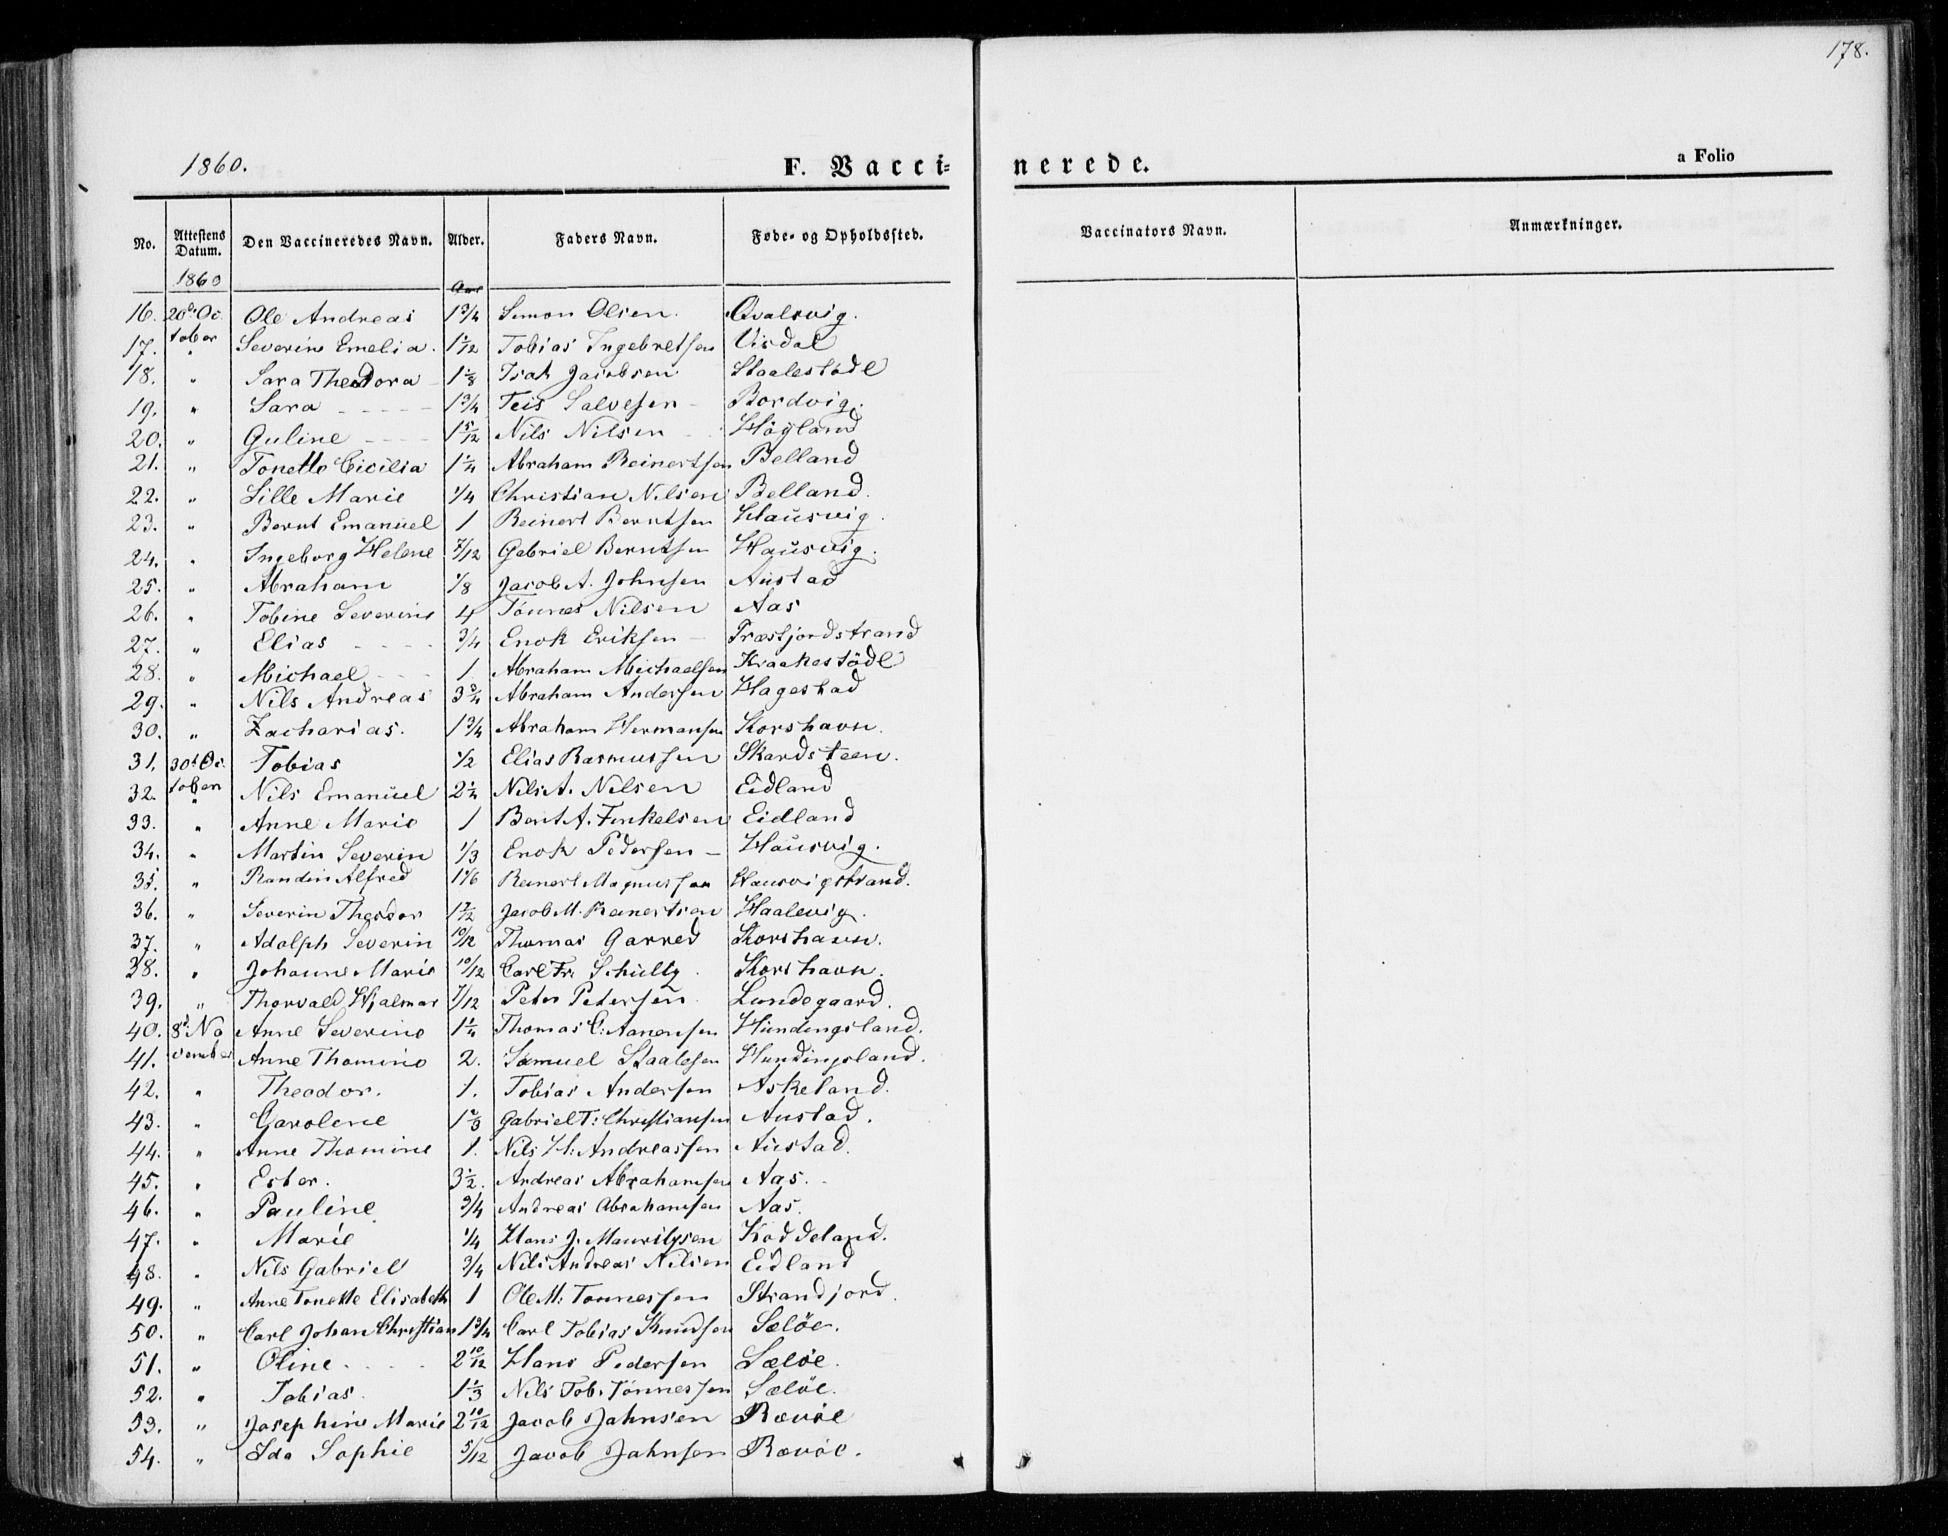 178.
1860. F. Vacci- nerede. a Folio
No. Attestens Datum. Den Vaccineredes Navn. Alder. Faders Navn. Føde- og Opholdssted. Vaccinators Navn. Anmærkninger.
1860 Aar
16. 20de Oc Ole Andreas 1 3/4 Simon Olsen. Qvalsvig.
17. tober Severine Emelia. 1 1/12 Tobias Ingebretsen Visdal
18. " Sara Theodora 1 1/8 Isak Jacobsen Staalestødl
19. " Sara - - - - 1 3/4 Teis Salvesen - Bordvig.
20. " Guline - - - - 1 5/12 Nils Nilsen Høgland
21. " Tonette Cicilia 1 1/4 Abraham Reinertsen Belland
22. " Lille Marie 1/4 Christian Nilsen Belland.
23. " Bernt Emanuel 1 Reinert Berntsen Hausvig.
24. " Ingeborg Helene 7/12 Gabriel Berntsen Hausvig.
25. " Abraham 1/8 Jacob A. Johnsen Austad
26. " Tobine Severine 4 Tønnes Nilsen Aas
27. " Elias - - - - 3/4 Enok Eriksen - Træsfjordstrand
28. " Michael - - - 1 Abraham Michaelsen Kraakestødl
29. " Nils Andreas 3 3/4 Abraham Andersen Hagestad
30. " Zacharias. 1 3/4 Abraham Hermansen Korshavn.
31. 30te Oc Tobias 1/2 Elias Rasmussen Skardsteen.
32. tober " Nils Emanuel 2 1/4 Nils A. Nilsen Eidland
33. " Anne Marie 1 Berit A. Finkelsen Eidland
34. " Martin Severin 1/3 Enok Pedersen - Hausvig.
35. " Randin Alfred 1 1/6 Reinert Magnussen Hausvigstrand.
36. " Severin Theodor 1 7/12 Jacob M. Reinertsen Haalevig.
37. " Adolph Severin 10/12 Thomas Garred Korshavn.
38. " Johanne Marie 10/12 Carl Fr. Schultz Korshavn.
39. " Thorvald Hjalmar 7/12 Peter Petersen Lundegaard.
40. 8de No Anne Severine 1 1/4 Thomas C: Aanensen Hundingsland.
41. vember Anne Thomine 2. Samuel Staalesen Hundingsland.
42. " Theodor. 1. Tobias Andersen Askeland.
43. " Carolene 1 2/3 Gabriel T: Christiansen Austad.
44. " Anne Thomine 1. Nils H: Andreassen Austad.
45. " Ester. 3 1/2. Andreas Abrahamsen Aas.
46. " Pauline 3/4 Andreas Abrahamsen Aas.
47. " Marie 1/4 Hans J. Mauritzsen Kaddeland.
48. " Nils Gabriel 3/4 Nils Andreas Nilsen Eidland
49. " Anne Tonette Elisabeth 1 Ole M: Tønnessen Strandjord.
50. " Carl Johan Christian 1 3/4 Carl Tobias Knudsen Sæløe.
51. " Oline - - - - 2 10/12 Hans Pedersen Sæløe.
52. " Tobias. 1 1/3 Nils Tob. Tønnessen Sæløe.
53. " Josephine Marie 2 10/12 Jacob Jahnsen Rævøe
54. " Ida Sophie 5/12 Jacob Jahnsen Rævøe.